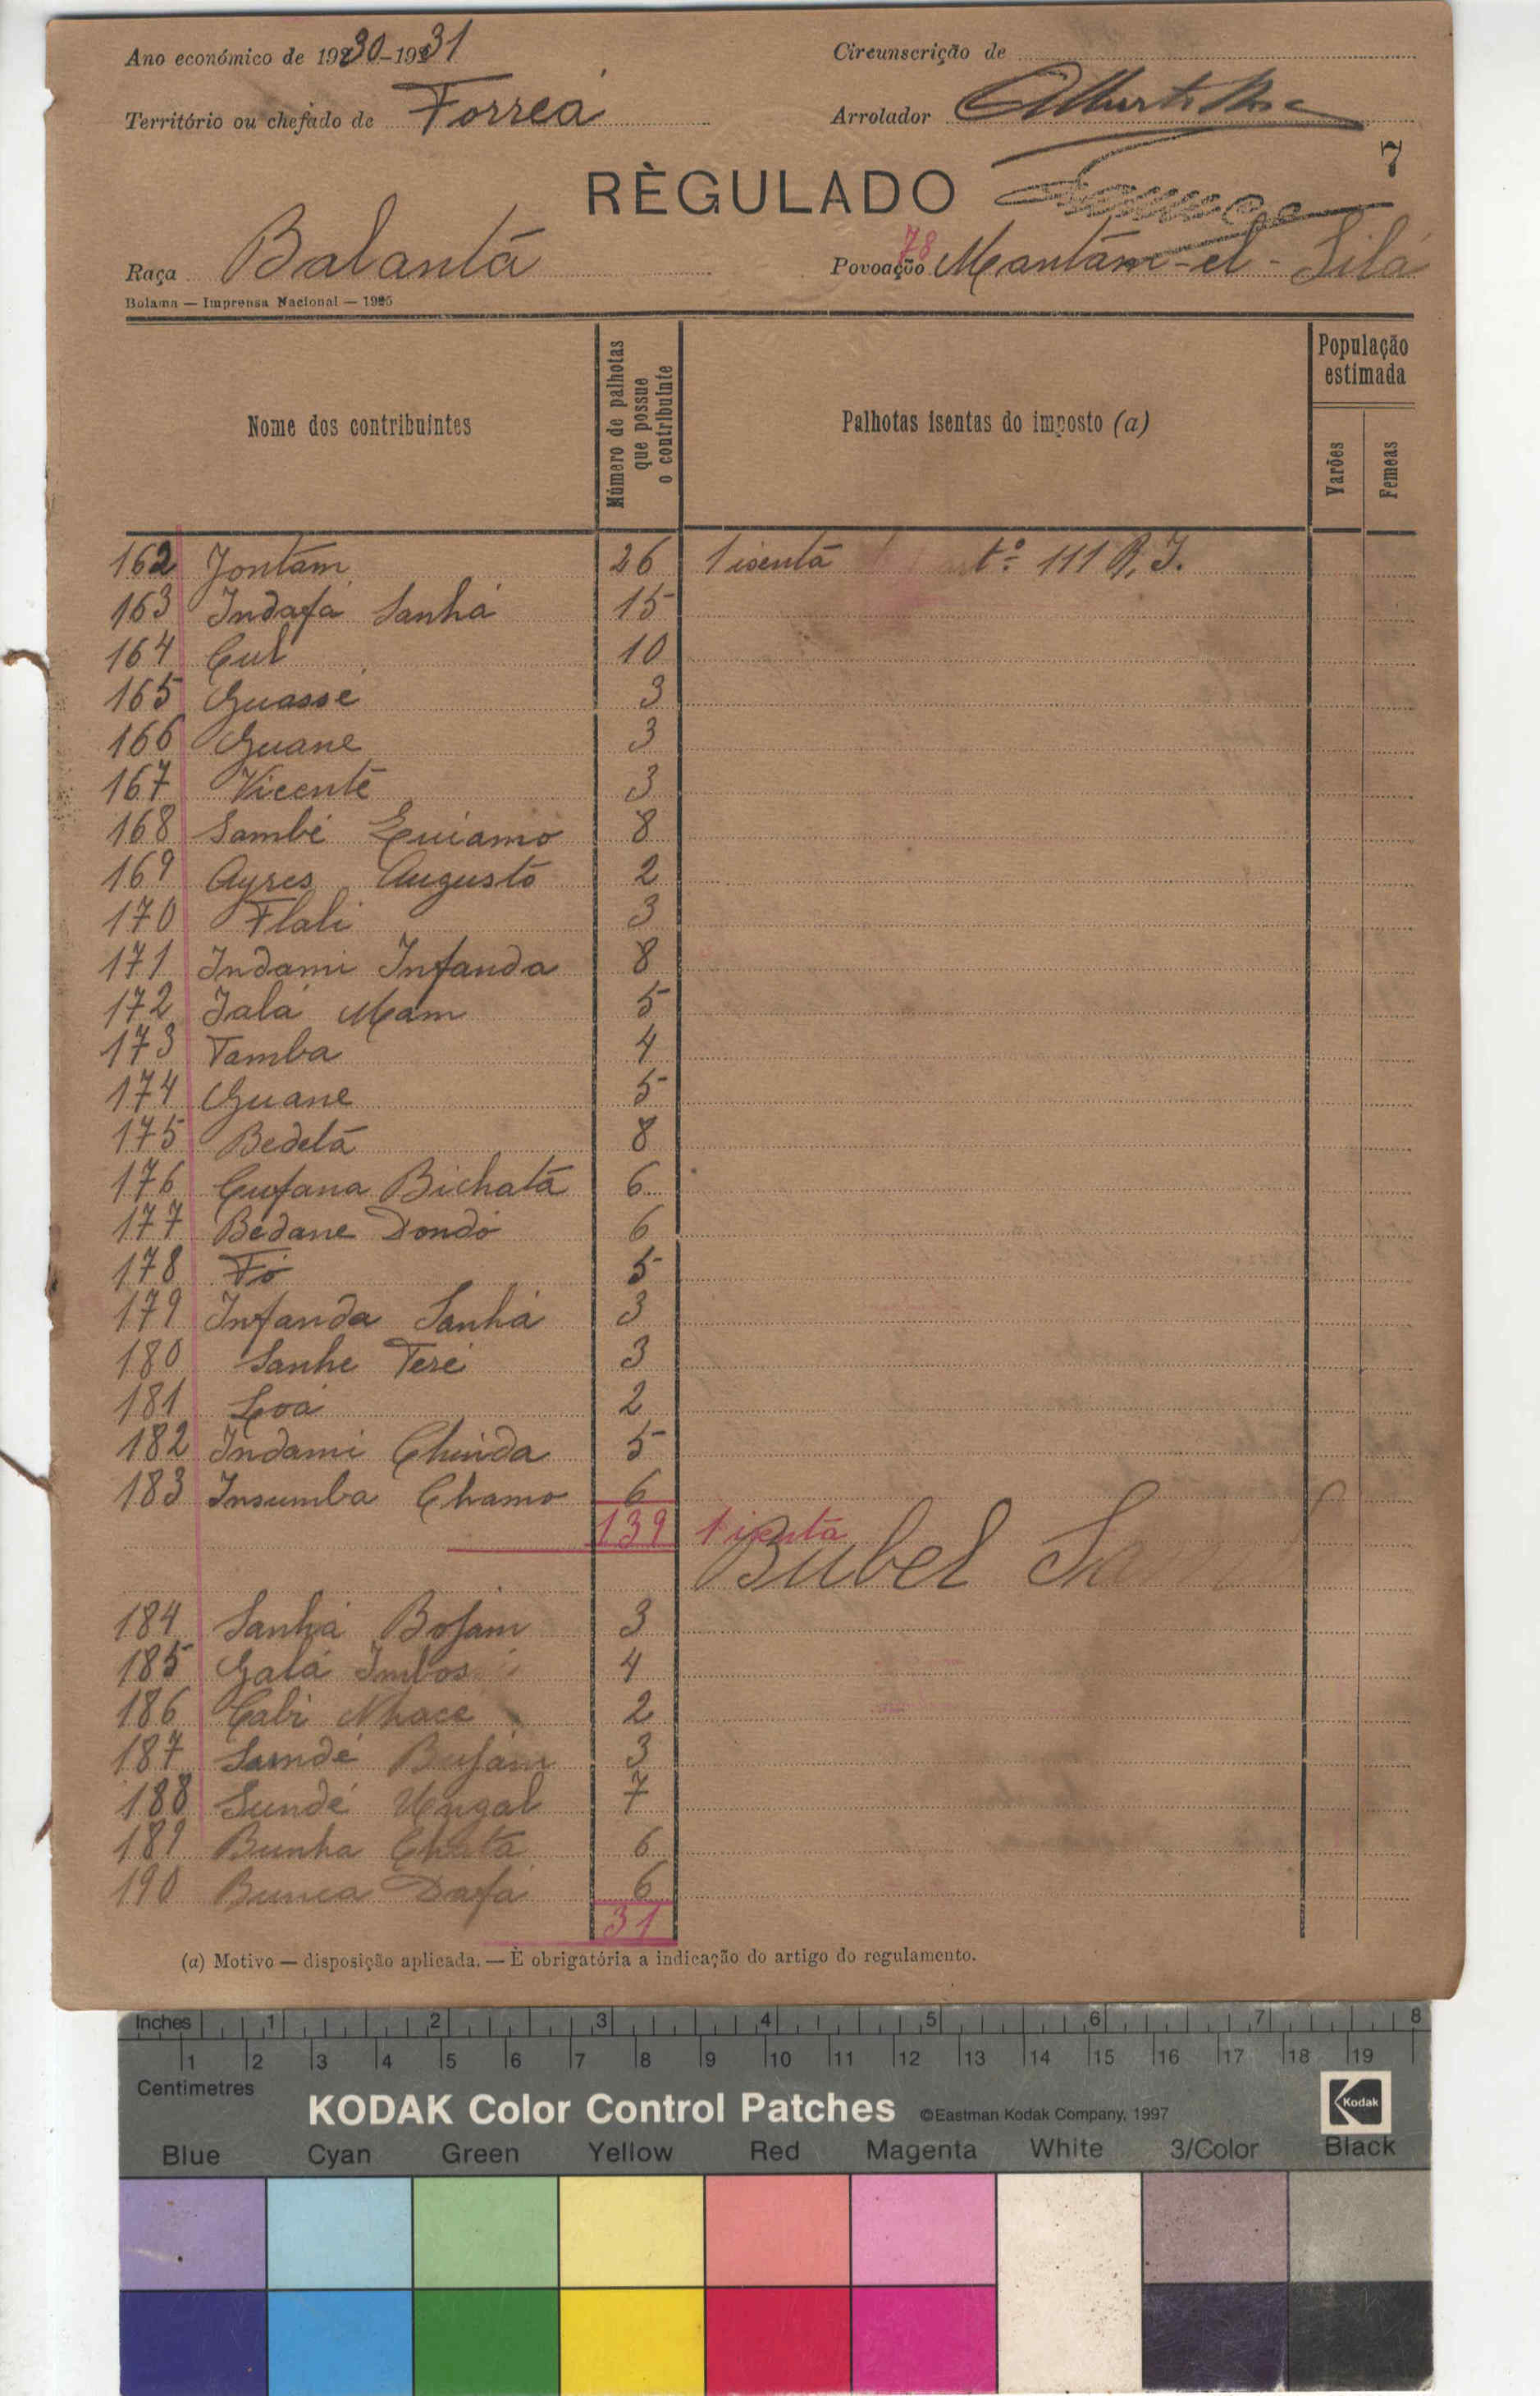 Ano económico de 1930-1931
Circunscrição de
Território ou chefado de Forreá
Arrolador
7
RÈGULADO
Raça Balantā
78
Povoação Mantām-el-Silá
Bolama — Imprensa Nacional — 1925
Nome dos contribuintes
Número de palhotas que possue o contribuinte
Palhotas isentas do imposto (a)
População estimada
Varões
Femeas
162 Jontām 26 1 isentā artº 111 R.I.
163 Indafá Sanhá 15
164 Cul 10
165 Guassé 3
166 Guane 3
167 Vicentē 3
168 Sambé Quiamo 8
169 Ayres Augusto 2
170 Flali 3
171 Indami Infanda 8
172 Jalá Mam 5
173 Tamba 4
174 Guane 5
175 Bedetā 8
176 Cufana Bichatā 6
177 Bedane Dondó 6
178 Fó 5
179 Infanda Sanhá 3
180 Sanhe Teré 3
181 Loá 2
182 Indami Chinda 5
183 Insumba Chamo 6
139 1 isentā
Bubel
184 Sanhá Bofam 3
185 Galá Imbos 4
186 Cabi Nhacé 2
187 Sambé Bufam 3
188 Sundé Ungal 7
189 Bunha Chatā 6
190 Bunca Dafá 6
31
(a) Motivo — disposição aplicada. — È obrigatória a indicação do artigo do regulamento.
Inches 1 2 3 4 5 6 7 8
1 2 3 4 5 6 7 8 9 10 11 12 13 14 15 16 17 18 19
Centimetres
KODAK Color Control Patches ©Eastman Kodak Company, 1997 Kodak
Blue Cyan Green Yellow Red Magenta White 3/Color Black